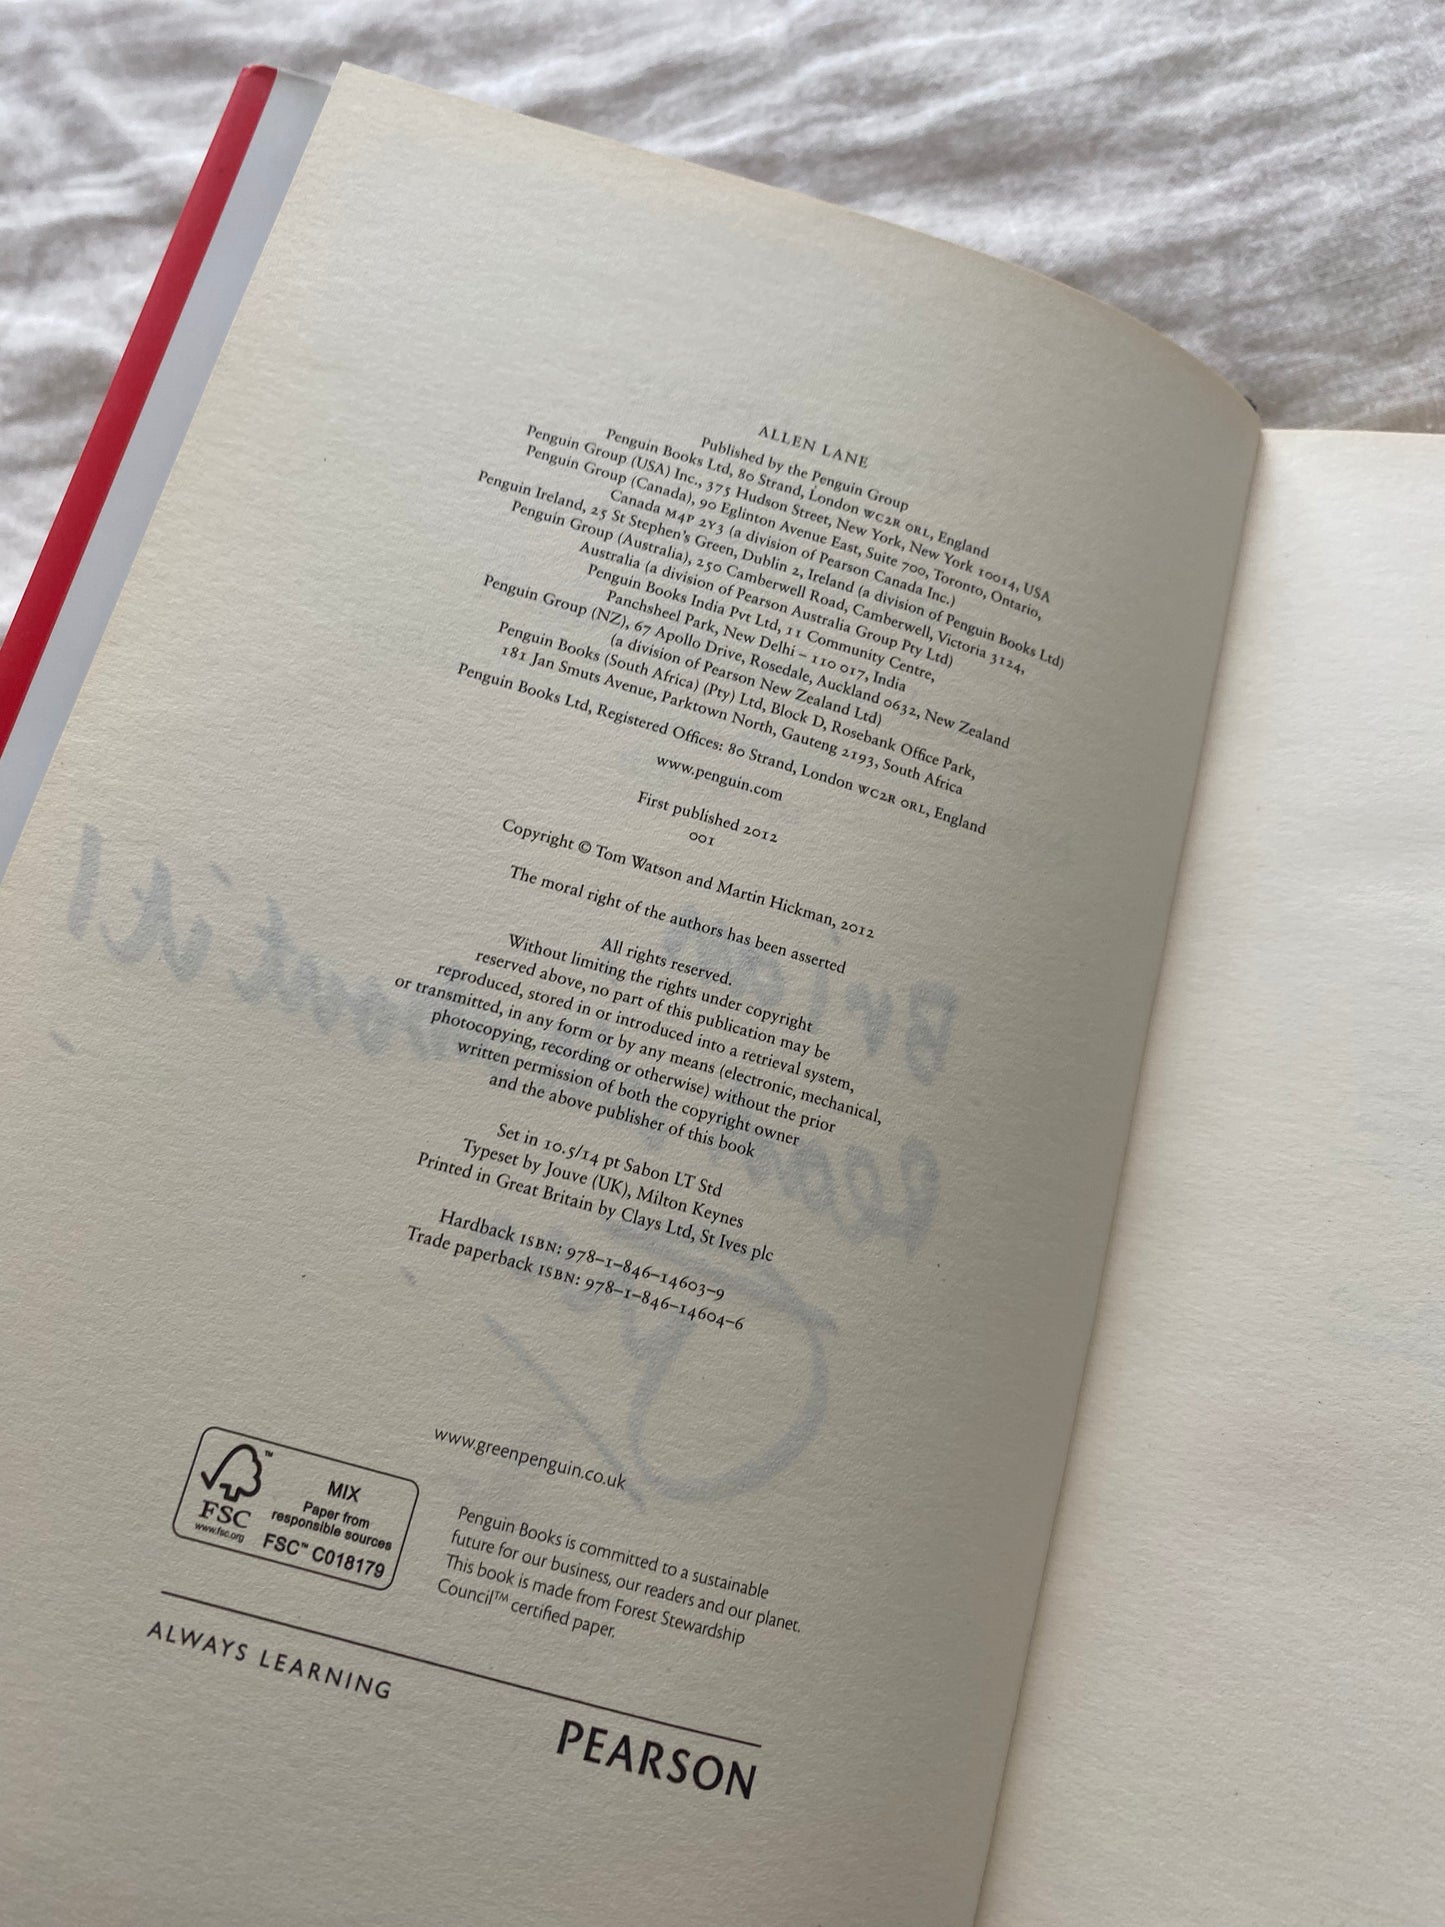 ALLEN LANE
Published by the Penguin Group
Penguin Books Ltd, 80 Strand, London WC2R 0RL, England
Penguin Group (USA) Inc., 375 Hudson Street, New York, New York 10014, USA
Penguin Group (Canada), 90 Eglinton Avenue East, Suite 700, Toronto, Ontario,
Canada M4P 2Y3 (a division of Pearson Canada Inc.)
Penguin Ireland, 25 St Stephen's Green, Dublin 2, Ireland (a division of Penguin Books Ltd)
Penguin Group (Australia), 250 Camberwell Road, Camberwell, Victoria 3124,
Australia (a division of Pearson Australia Group Pty Ltd)
Penguin Books India Pvt Ltd, 11 Community Centre,
Panchsheel Park, New Delhi – 110 017, India
Penguin Group (NZ), 67 Apollo Drive, Rosedale, Auckland 0632, New Zealand
(a division of Pearson New Zealand Ltd)
Penguin Books (South Africa) (Pty) Ltd, Block D, Rosebank Office Park,
181 Jan Smuts Avenue, Parktown North, Gauteng 2193, South Africa
Penguin Books Ltd, Registered Offices: 80 Strand, London WC2R 0RL, England
www.penguin.com
First published 2012
001
Copyright © Tom Watson and Martin Hickman, 2012
The moral right of the authors has been asserted
All rights reserved.
Without limiting the rights under copyright
reserved above, no part of this publication may be
reproduced, stored in or introduced into a retrieval system,
or transmitted, in any form or by any means (electronic, mechanical,
photocopying, recording or otherwise) without the prior
written permission of both the copyright owner
and the above publisher of this book
Set in 10.5/14 pt Sabon LT Std
Typeset by Jouve (UK), Milton Keynes
Printed in Great Britain by Clays Ltd, St Ives plc
Hardback ISBN: 978–1–846–14603–9
Trade paperback ISBN: 978–1–846–14604–6
www.greenpenguin.co.uk
FSC
www.fsc.org
MIX
Paper from
responsible sources
FSC™ C018179
Penguin Books is committed to a sustainable
future for our business, our readers and our planet.
This book is made from Forest Stewardship
Council™ certified paper.
ALWAYS LEARNING
PEARSON